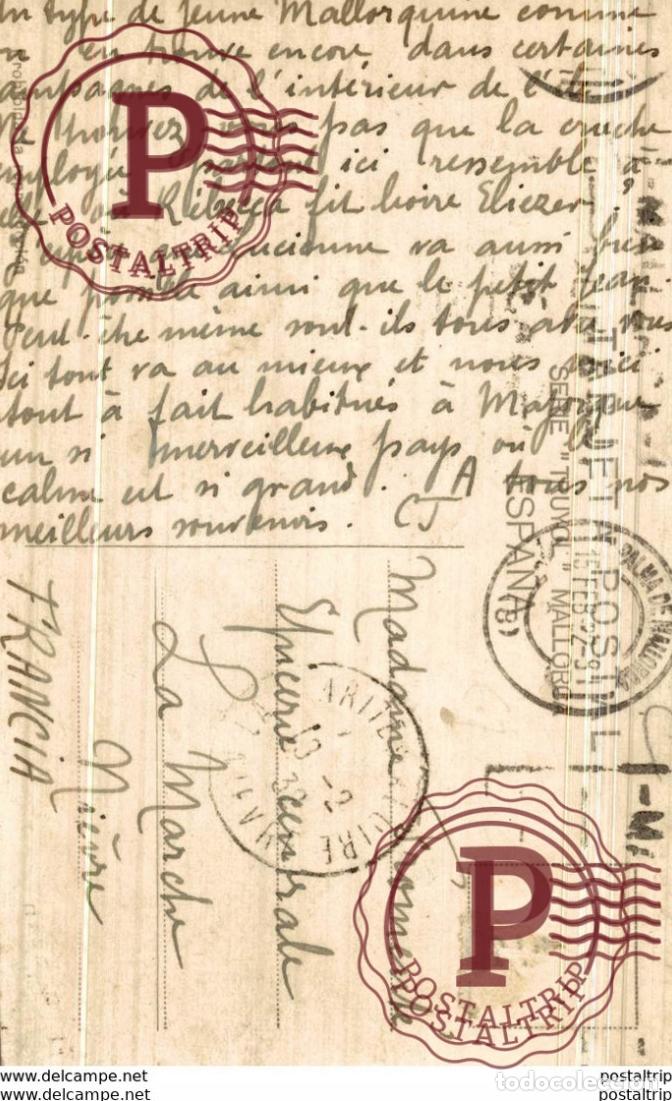 Un type de jeune Mallorquine comme
on en trouve encore dans certaines
campagnes de l'intérieur de l'île
Ne trouvez vous pas que la cruche
employée ici ressemble à
celle où Rébecca fit boire Eliezer
va aussi bien
que ainsi que le petit Jean.
Peut-être même sont-ils tous
Ici tout va au mieux et nous voici
tout à fait habitués à Majorque
un si merveilleux pays où le
calme est si grand. A tous nos
meilleurs souvenirs. CJ
Madame
Epicerie centrale
La Marche
Nièvre
FRANCIA
TARJETA POSTAL
SERIE "TRUYOL" MALLORCA
ESPAÑA
PALMA DE MALLORCA
15 FEB
P
POSTALTRIP
P
POSTALTRIP
POSTALTRIP
www.delcampe.net
postaltrip
www.delcampe.net
postaltrip
todocoleccion